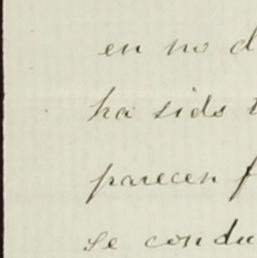 en no d
ha sido t
parecen f
se condu